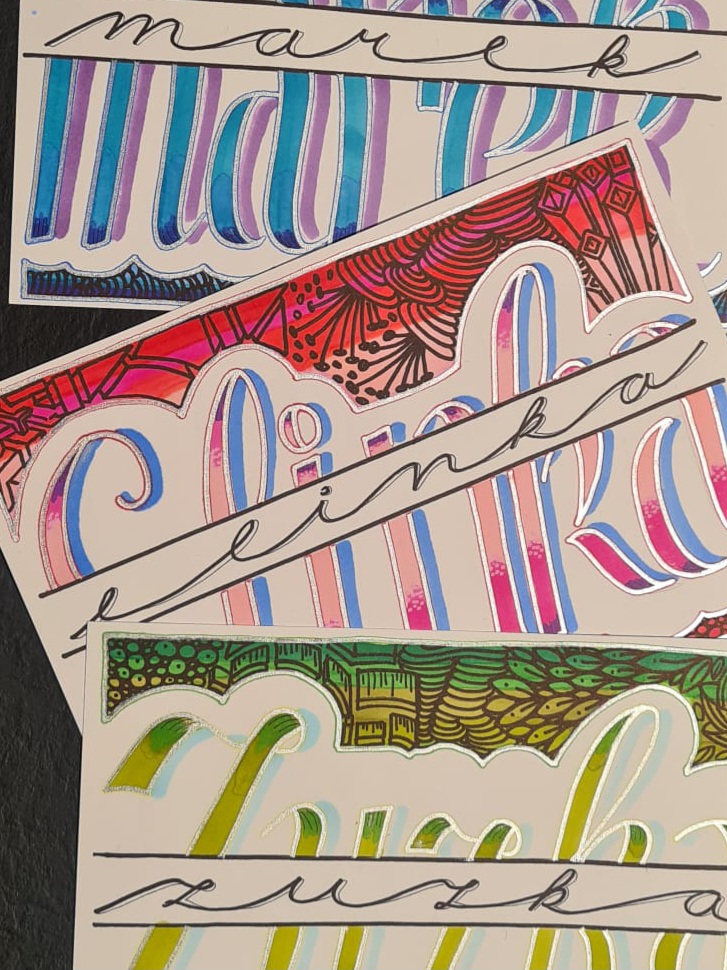 marek
marek
elinka
Elinka
Zuzka
zuzka